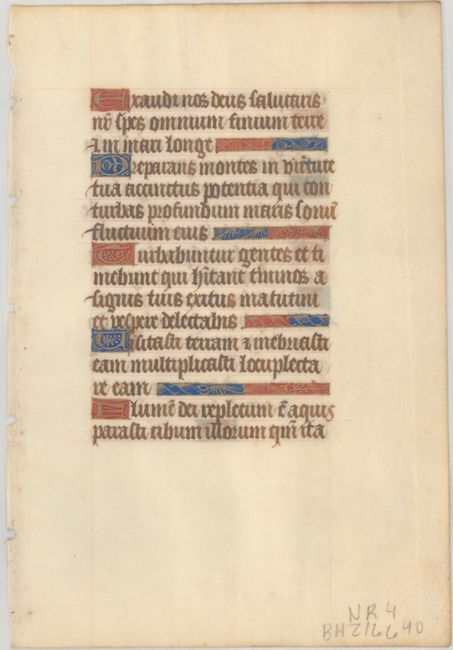 Exaudi nos deus salutaris
nr̄ spes omnium finium terre
⁊ in mari longe
Preparans montes in virtute
tua accinctus potentia qui con
turbas profundum maris sonū
fluctuum eius
Turbabuntur gentes et ti
mebunt qui hītant t̄minos a
signis tuis exitus matutini
et vespere delectabis
Visitasti terram ⁊ inebriasti
eam multiplicasti locupleta
re eam
Flumē dei repletum ē aquis
parasti cibum illorum qm̄ ita
NR 4
BH 216640